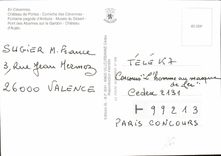 En Cévennes.
Château de Portes - Corniche des Cévennes
Fontaine pagode d'Anduze - Musée du Désert
Pont des Abarines sur le Gardon - Château
d'Aujac
SUGIER M. France
3, Rue Jean Mermoz
26000 VALENCE
TÉLÉ 7
Concours "L'homme au masque
de fer"
Cedex 2131
99213
PARIS CONCOURS